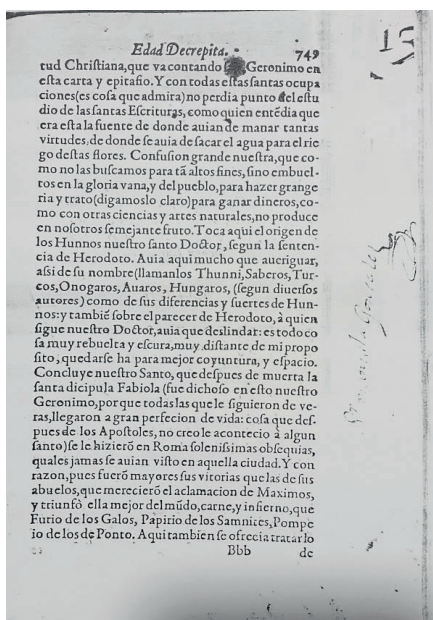 Edad Decrepita. 749
tud Christiana, que va contando Geronimo en
esta carta y epitafio. Y con todas estas santas ocupa
ciones (es cosa que admira) no perdia punto del estu
dio de las santas Escrituras, como quien entēdia que
era esta la fuente de donde auian de manar tantas
virtudes, de donde se auia de sacar el agua para el rie
go destas flores. Confusion grande nuestra, que co-
mo no las buscamos para tā altos fines, sino embuel-
tos en la gloria vana, y del pueblo, para hazer grange
ria y trato (digamoslo claro) para ganar dineros, co-
mo con otras ciencias y artes naturales, no produce
en nosotros semejante fruto. Toca aqui el origen de
los Hunnos nuestro santo Doctor, segun la senten-
cia de Herodoto. Auia aqui mucho que aueriguar,
assi de su nombre (llamanlos Thunni, Saberos, Tur-
cos, Onogaros, Auaros, Hungaros, (segun diuersos
autores) como de sus diferencias y suertes de Hun-
nos: y tambiē sobre el parecer de Herodoto, à quien
sigue nuestro Doctor, auia que deslindar: es todo co
sa muy rebuelta y escura, muy distante de mi propo
sito, quedarse ha para mejor coyuntura, y espacio.
Concluye nuestro Santo, que despues de muerta la
santa dicipula Fabiola (fue dichoso en esto nuestro
Geronimo, porque todas las que le siguieron de ve-
ras, llegaron a gran perfecion de vida: cosa que des-
pues de los Apostoles, no creo le acontecio à algun
santo) se le hizierō en Roma solenissimas obsequias,
quales jamas se auian visto en aquella ciudad. Y con
razon, pues fuerō mayores sus vitorias que las de sus
abuelos, que merecierō el aclamacion de Maximos,
y triunfò ella mejor del mūdo, carne, y infierno, que
Furio de los Galos, Papirio de los Samnites, Pompe
io de los de Ponto. Aqui tambien se ofrecia tratar lo
Bbb de